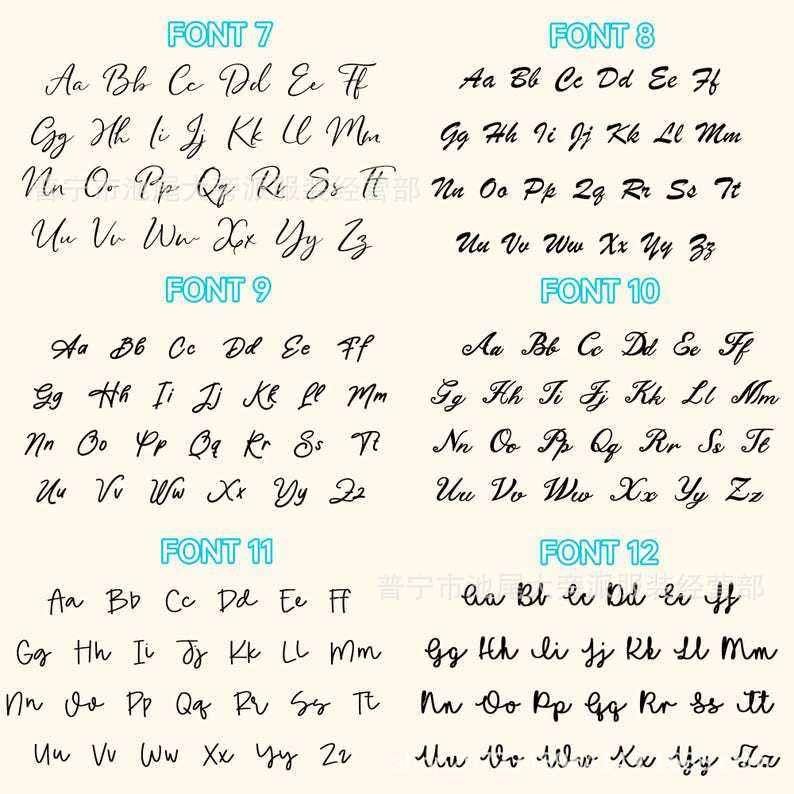 FONT 7
Aa Bb Cc Dd Ee Ff
Gg Hh Ii Jj Kk Ll Mm
Nn Oo Pp Qq Rr Ss Tt
Uu Vv Ww Xx Yy Zz
FONT 8
Aa Bb Cc Dd Ee Ff
Gg Hh Ii Jj Kk Ll Mm
Nn Oo Pp Qq Rr Ss Tt
Uu Vv Ww Xx Yy Zz
普宁市池尾大旁派服装经营部
FONT 9
Aa Bb Cc Dd Ee Ff
Gg Hh Ii Jj Kk Ll Mm
Nn Oo Pp Qq Rr Ss Tt
Uu Vv Ww Xx Yy Zz
FONT 10
Aa Bb Cc Dd Ee Ff
Gg Hh Ii Jj Kk Ll Mm
Nn Oo Pp Qq Rr Ss Tt
Uu Vv Ww Xx Yy Zz
FONT 11
Aa Bb Cc Dd Ee Ff
Gg Hh Ii Jj Kk Ll Mm
Nn Oo Pp Qq Rr Ss Tt
Uu Vv Ww Xx Yy Zz
FONT 12
普宁市池尾大旁派服装经营部
Aa Bb Cc Dd Ee Ff
Gg Hh Ii Jj Kk Ll Mm
Nn Oo Pp Qq Rr Ss Tt
Uu Vv Ww Xx Yy Zz